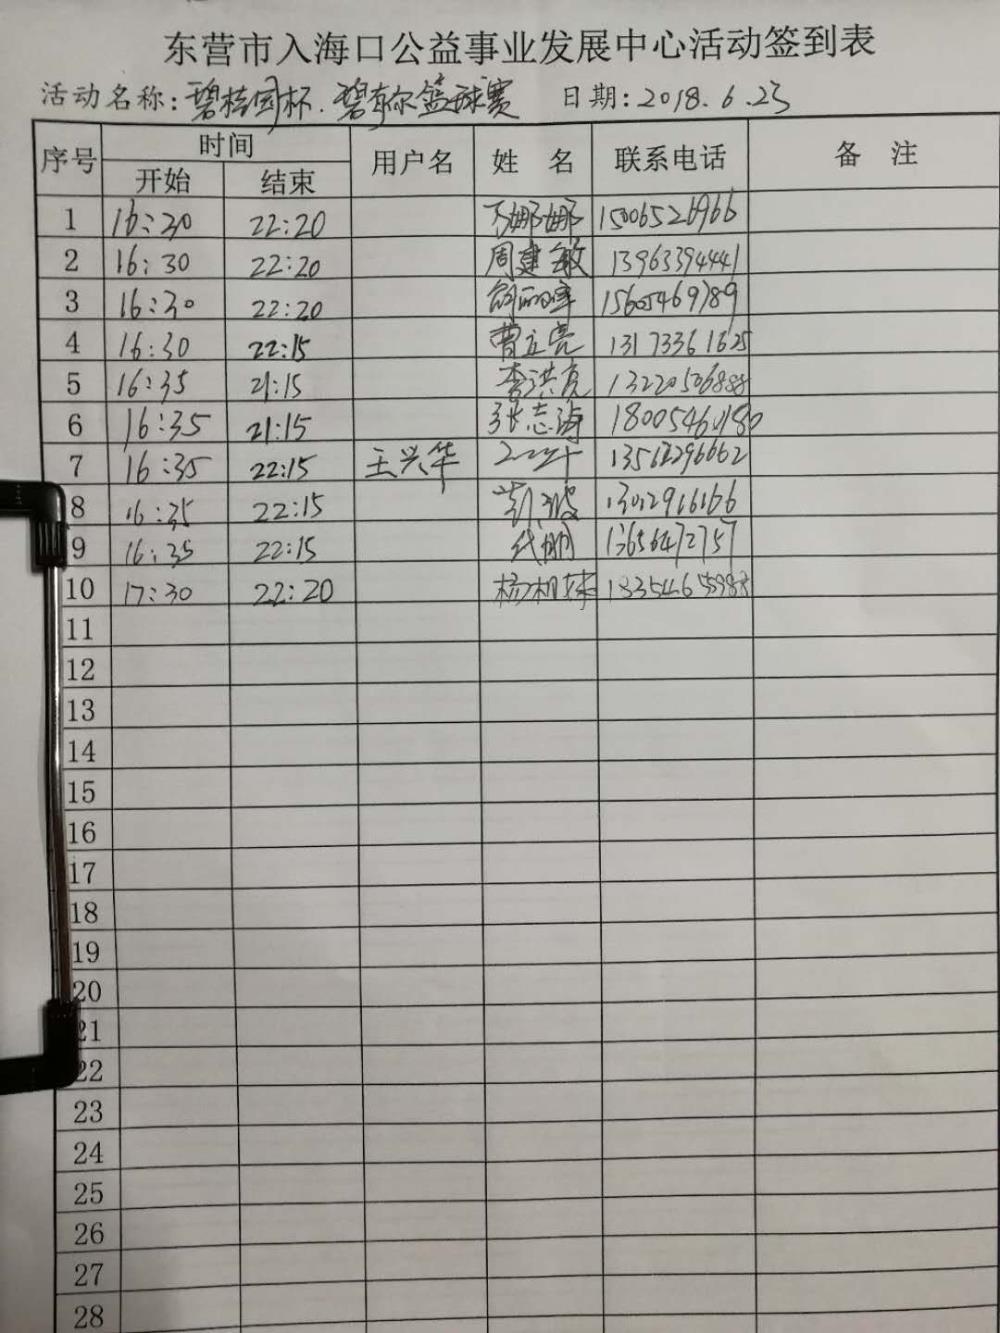 东营市入海口公益事业发展中心活动签到表
活动名称:碧桂园杯.碧有尔篮球赛 日期:2018.6.23
序号 时间 用户名 姓 名 联系电话 备 注
开始 结束
1 16:30 22:20 娜娜 15006526966
2 16:30 22:20 周建敏 13963394441
3 16:30 22:20 15605469789
4 16:30 22:15 曹立亮 13173361625
5 16:35 21:15 李洪亮 13220506888
6 16:35 21:15 张志海 18005460180
7 16:35 22:15 王兴华
8 16:35 22:15
9 16:35 22:15 代朋 13656472757
10 17:30 22:20 杨相妹 18354655988
11
12
13
14
15
16
17
18
19
20
21
22
23
24
25
26
27
28